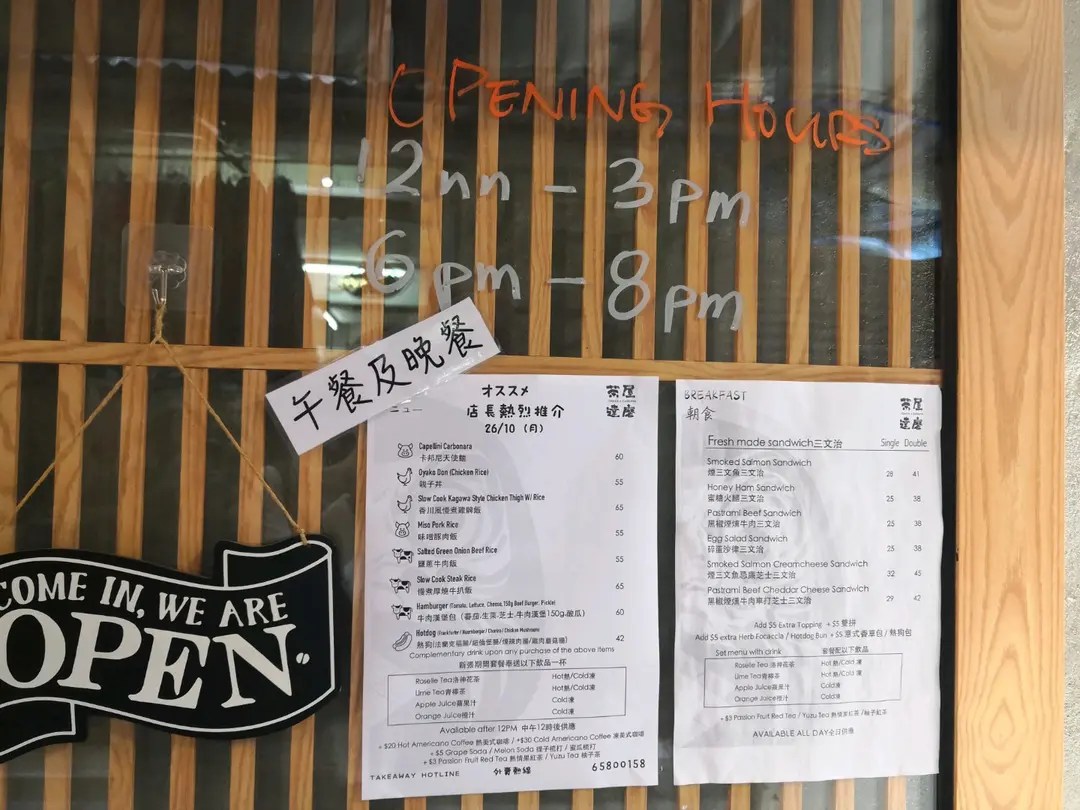 OPENING HOURS
12nn - 3pm
6pm - 8pm
午餐及晚餐
オススメ
ニュー
店長熱烈推介
26/10 (月)
茶屋
達磨
Capellini Carbonara
卡邦尼天使麵 60
Oyako Don (Chicken Rice)
親子丼 55
Slow Cook Kagawa Style Chicken Thigh W/ Rice
香川風慢煮雞髀飯 65
Miso Pork Rice
味噌豚肉飯 55
Salted Green Onion Beef Rice
鹽蔥牛肉飯 55
Slow Cook Steak Rice
慢煮厚燒牛扒飯 65
Hamburger (Tomato, Lettuce, Cheese, 150g Beef Burger, Pickle)
牛肉漢堡包 (番茄·生菜·芝士·牛肉漢堡150g·酸瓜) 60
Hotdog (Frankfurter / Nuremburger / Chorizo / Chicken Mushroom)
42
Complementary drink upon any purchase of the above items
新張期間套餐奉送以下飲品一杯
Roselle Tea 洛神花茶 Hot熱/Cold凍
Lime Tea 青檸茶 Hot熱/Cold凍
Apple Juice蘋果汁 Cold凍
Orange Juice橙汁 Cold凍
Available after 12PM 中午12時後供應
+$20 Hot Americano Coffee 熱美式咖啡 / +$30 Cold Americano Coffee 凍美式咖啡
+$5 Grape Soda / Melon Soda 提子梳打 / 蜜瓜梳打
+$3 Passion Fruit Red Tea 熱情果紅茶 / Yuzu Tea 柚子茶
TAKEAWAY HOTLINE 外賣熱線 65800158
BREAKFAST
朝食
茶屋
達磨
Fresh made sandwich三文治 Single Double
Smoked Salmon Sandwich
煙三文魚三文治 28 41
Honey Ham Sandwich
蜜糖火腿三文治 25 38
Pastrami Beef Sandwich
黑椒煙燻牛肉三文治 25 38
Egg Salad Sandwich
碎蛋沙律三文治 25 38
Smoked Salmon Creamcheese Sandwich
煙三文魚忌廉芝士三文治 32 45
Pastrami Beef Cheddar Cheese Sandwich
黑椒煙燻牛肉車打芝士三文治 29 42
Add $5 Extra Topping +$5 雙拼
Add $5 extra Herb Focaccia / Hotdog Bun +$5 意式香草包 / 熱狗包
Set menu with drink 套餐配以下飲品
Roselle Tea 洛神花茶 Hot熱/Cold凍
Lime Tea青檸茶 Hot熱/Cold凍
Apple Juice蘋果汁 Cold凍
Orange Juice橙汁 Cold凍
+$3 Passion Fruit Red Tea / Yuzu Tea 熱情果紅茶 /柚子紅茶
AVAILABLE ALL DAY全日供應
COME IN, WE ARE
OPEN